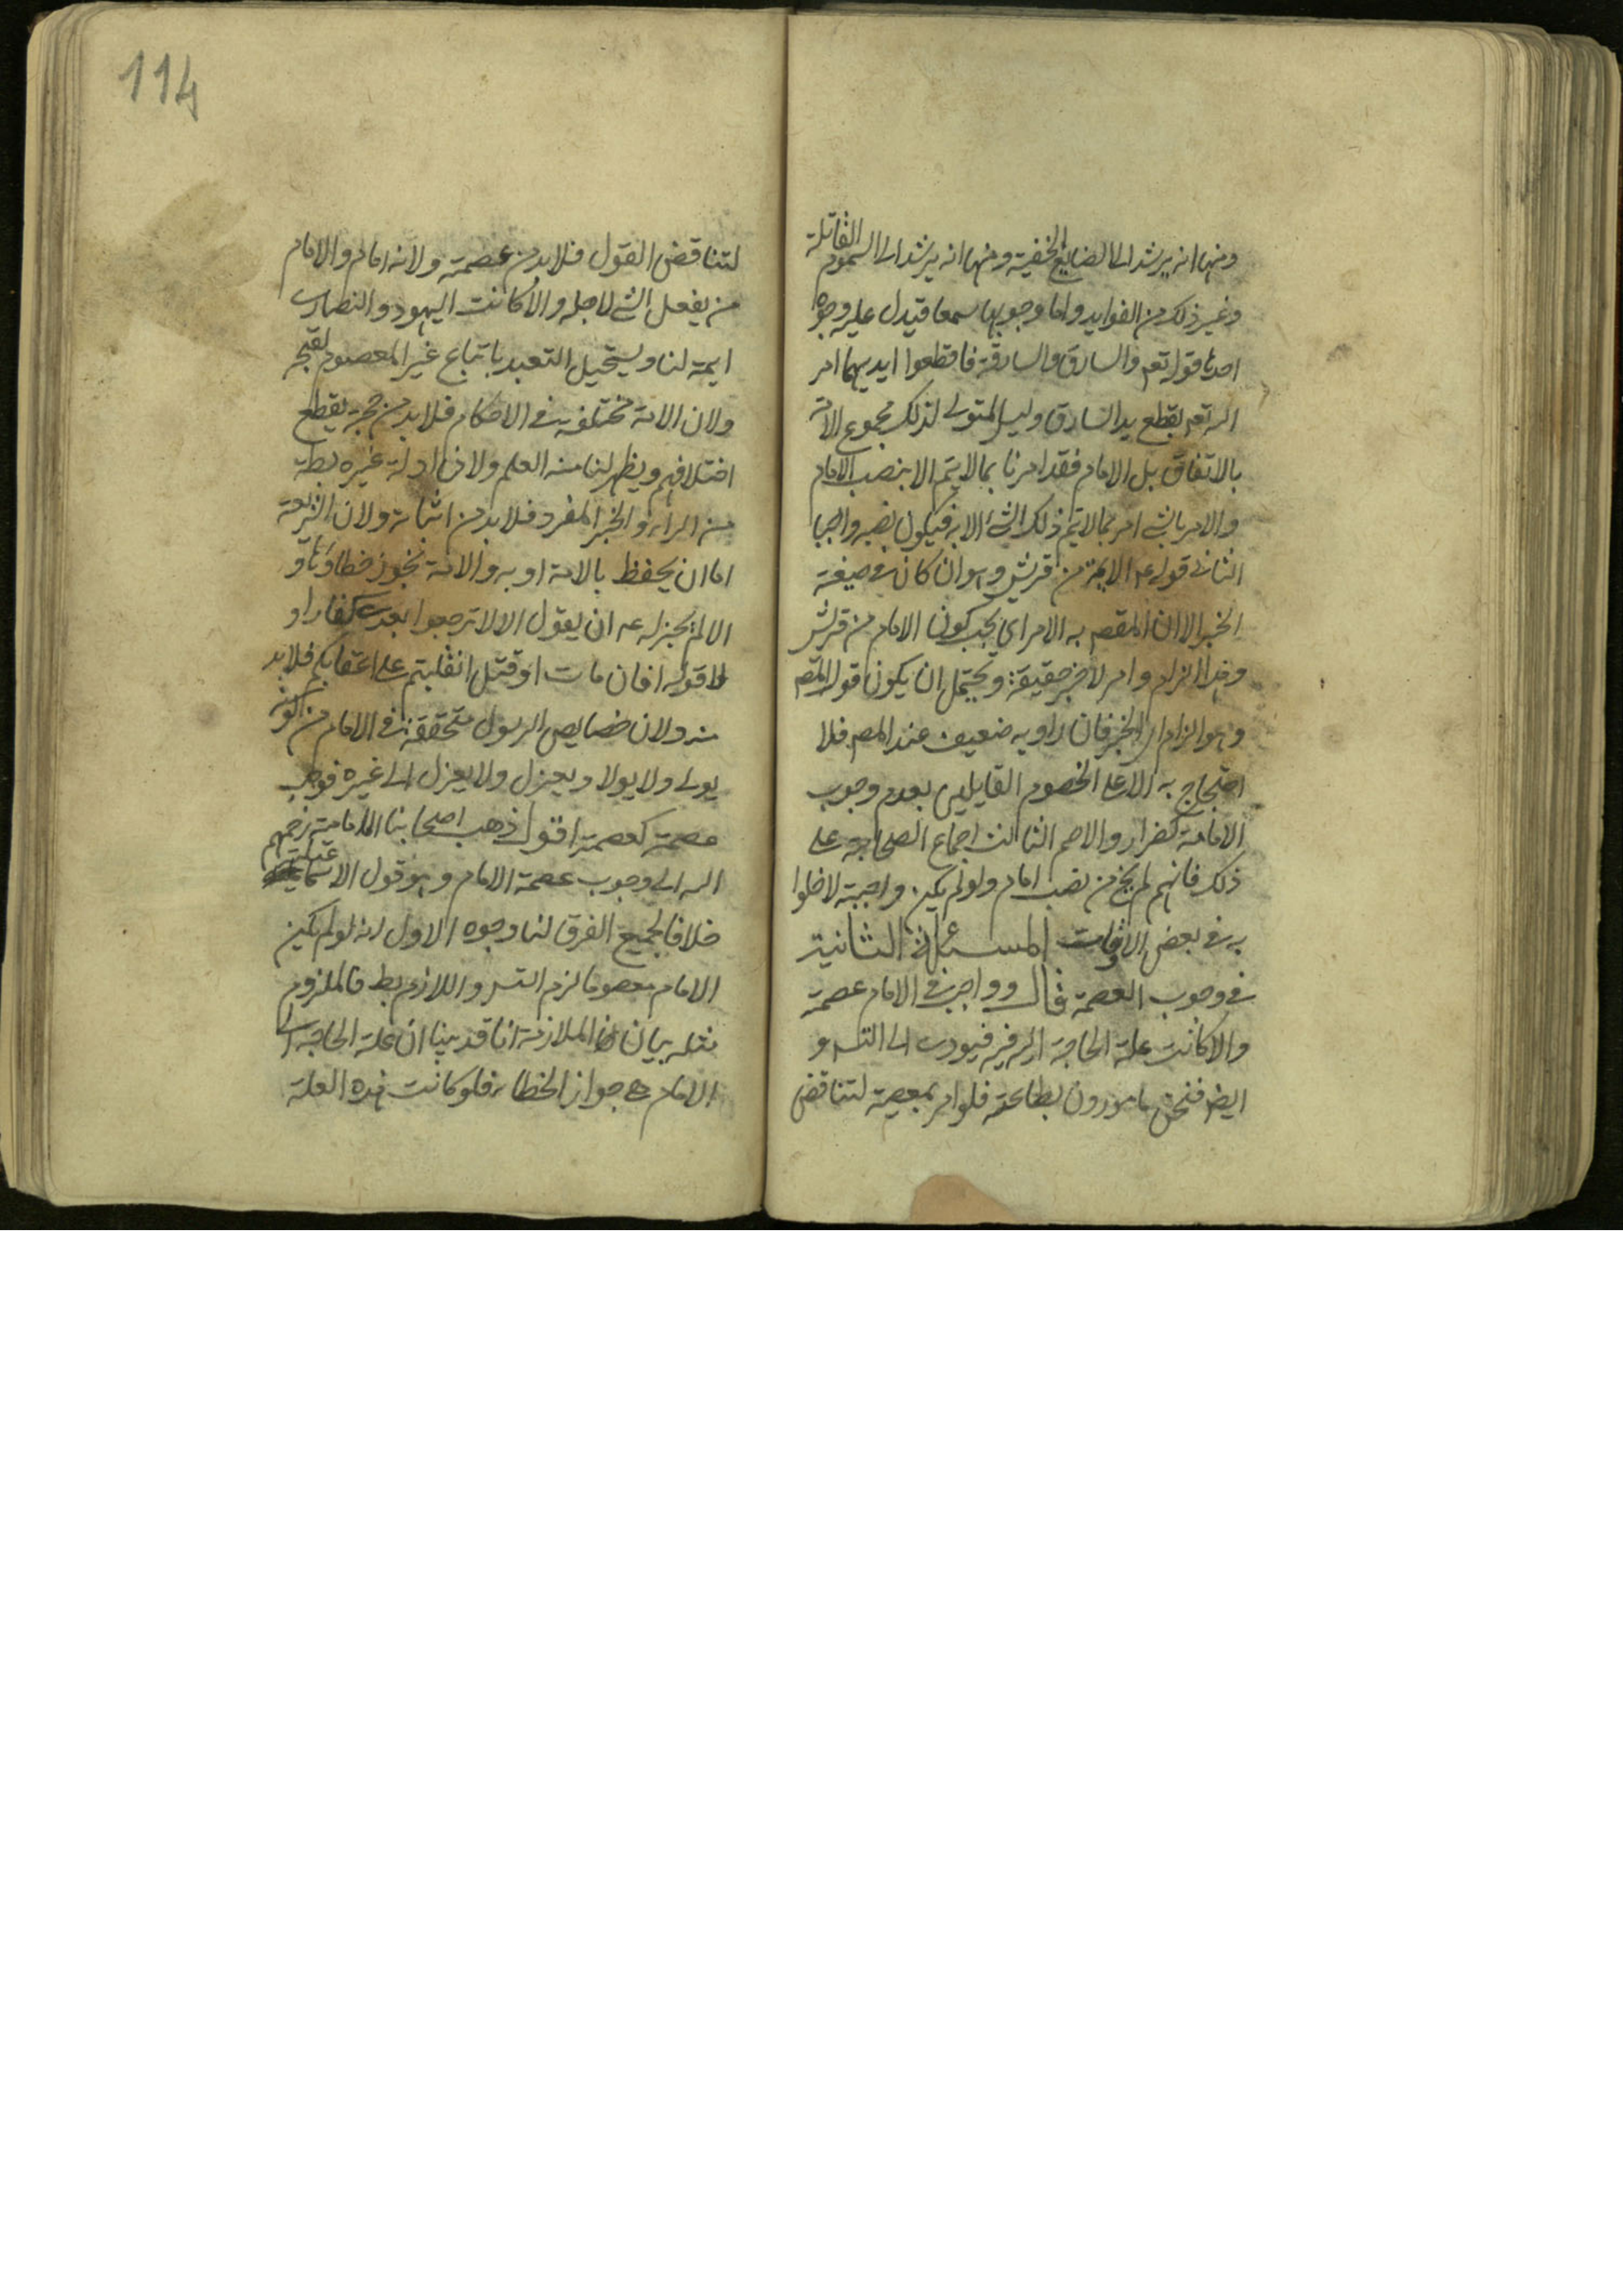 ومنها انه يرشد الى الصنايع الخفية ومنها انه يرشد الى السموم القاتلة
وغير ذلك من الفوايد واما وجوبها سمعا فيدل عليه وجوه
احدها قوله تعه والسارق والسارقة فاقطعوا ايديهما امر
الله تعه بقطع يد السارق وليس المتولى لذلك مجموع الامة
بالاتفاق بل الامام فقد امرنا بما لا يتم الا بنصب الامام
والامر بالشئ امر بما لا يتم ذلك الشئ الا به فيكون نصبه واجبا
الثانى قوله عم الايمة من قريش وهو ان كان فى صيغة
الخبر الا ان المقصه به الامر اي يجب كون الامام من قريش
وهذا الزام وامر لا خبر حقيقة ويحتمل ان يكون قول المصه
وهو الزام اى الخبر فان راويه ضعيف عند المصه فلا
احتجاج به الا على الخصوم القايلين بعدم وجوب
الامامة كضرار والاصم الثالث اجماع الصحابة على
ذلك فانهم لم يخ من نصب امام ولو لم يكن واجبة لاخلوا
به فى بعض الاوقات المسئلة الثانية
فى وجوب العصمة قال وواجب فى الامام عصمة
والا كانت علة الحاجة اليه فيه فيودى الى التسه و
ايضه فنحن مامورون بطاعته فلو امر بمعصية لتناقض
لتناقض القول فلا بد من عصمته ولانه امام والامام
من يفعل الشئ لاجله والا كانت اليهود والنصارى
ايمة لنا ويستحيل التعبد باتباع غير المعصوم لقبحه
ولان الامة مختلفة فى الاحكام فلا بد من حجة يقطع
اختلافهم ويظهر لنا منه العلم ولان ادلة غيره بطه
من الراى والخبر المفرد فلا بد من اثباته ولان الشريعة
اما ان يحفظ بالامة او به والامة تجوز خطاؤها و
الا لم يجز له عه ان يقول الا لا ترجعوا بعدى كفارا و
لا قوله افان مات او قتل انقلبتم على اعقابكم فلا بد
منه ولان خصايص الرسول متحققة فى الامام من كونه
يولى ولا يولا ويعزل ولا يعزل الى غيره فوجب
عصمته كعصمته اقول ذهب اصحابنا الامامية رحمهم
الله الى وجوب عصمة الامام وهو قول الاسماعيلية
خلافا لجميع الفرق لنا وجوه الاول انه لو لم يكن
الامام معصوما لزم التسه واللازم بطه فالملزوم
مثله بيان الملازمة انا قد بينا ان علة الحاجة الى
الامام هى جواز الخطاء فلو كانت هذه العلة
114